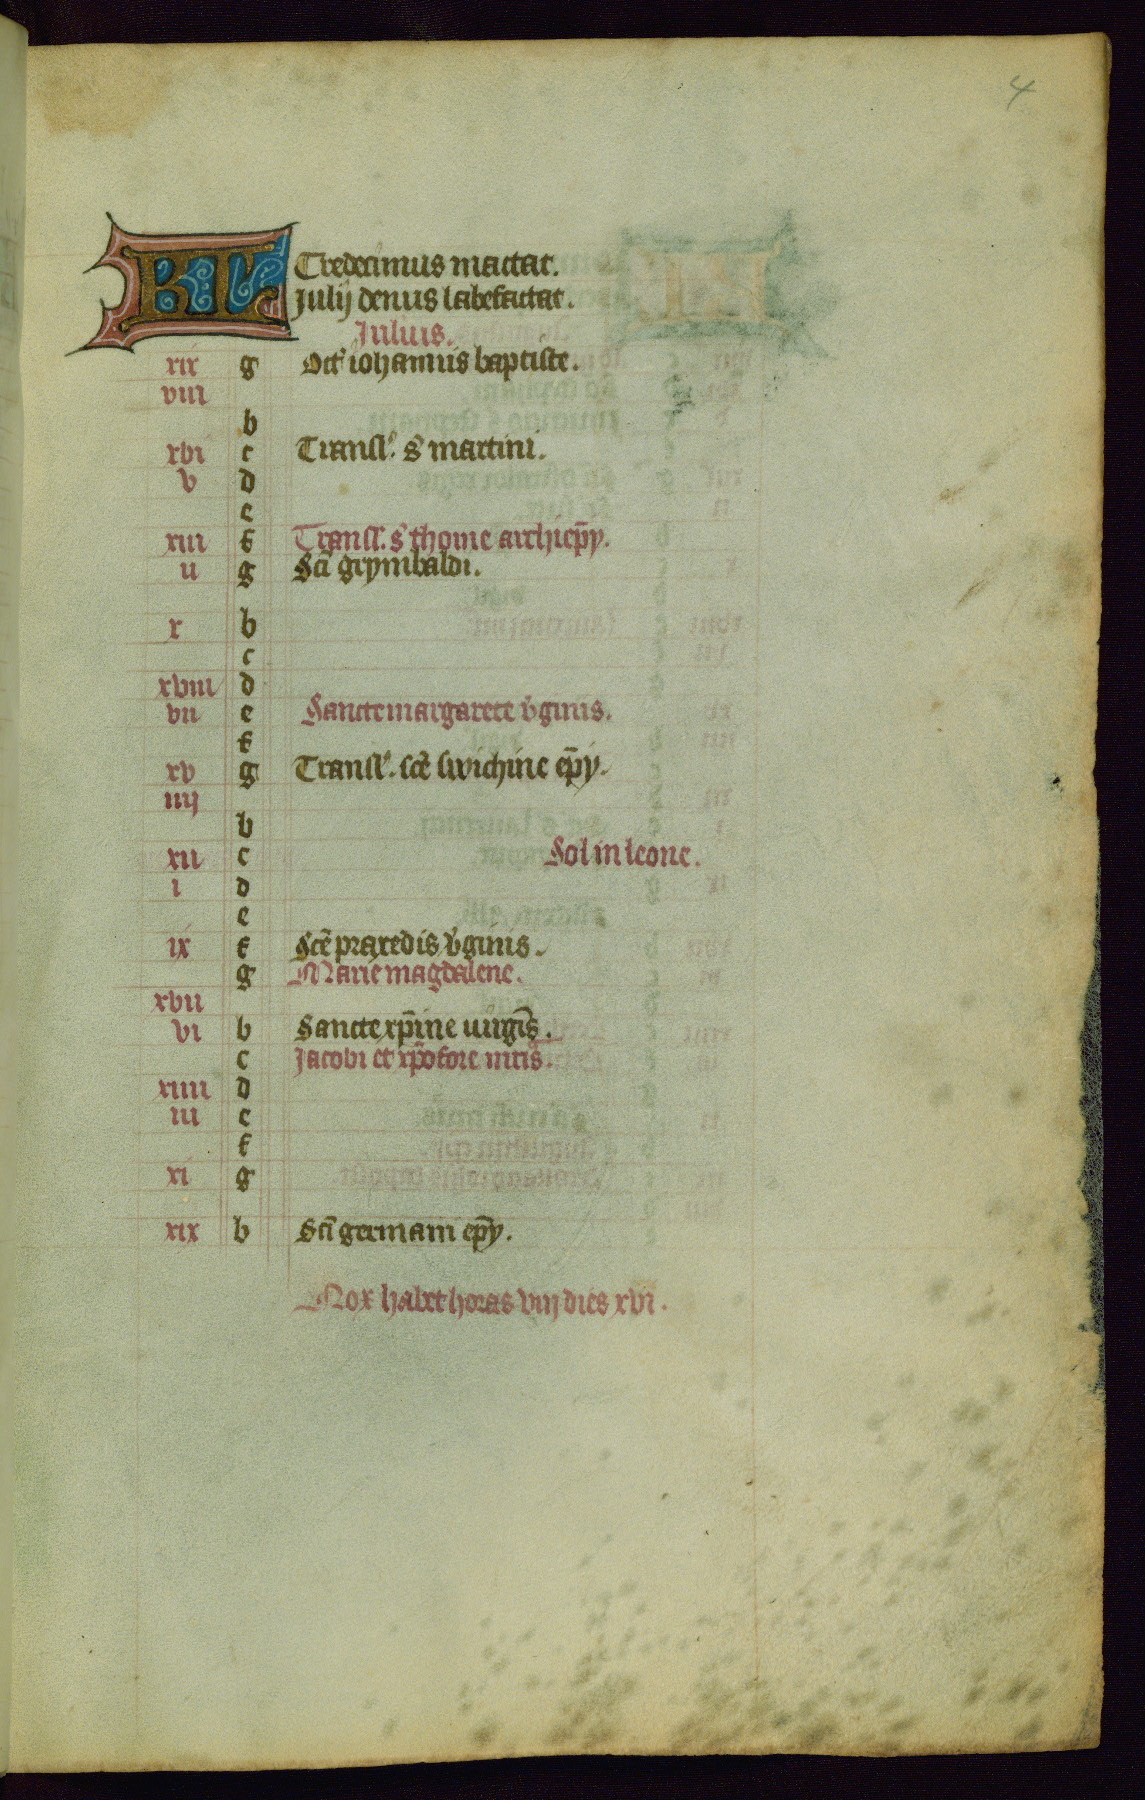 4
KL Tredecimus mactat.
Julij denus labefactat.
Julius.
xix g Oct' iohannis baptiste.
viii
b
xvi c Transl'. s' martini.
v d
e
xiii f Transl'. s' thome archiep̄y.
ii g Sci̅ grymbaldi.
x b
c
xviii d
vii e Sancte margarete v̔ginis.
f
xv g Transl'. sce̅ swichine ep̄y.
iiij
b
xii c Sol in leone.
i d
e
ix f Sce̅ praxedis v̔ginis.
g Marie magdalene.
xvii
vi b Sancte xp̄ine uirgi̅s.
c Jacobi et xp̄ofore mri̅s.
xiiii d
iii e
f
xi g
xix b Sci̅ germani ep̄y.
Nox habet horas viij dies xvi.